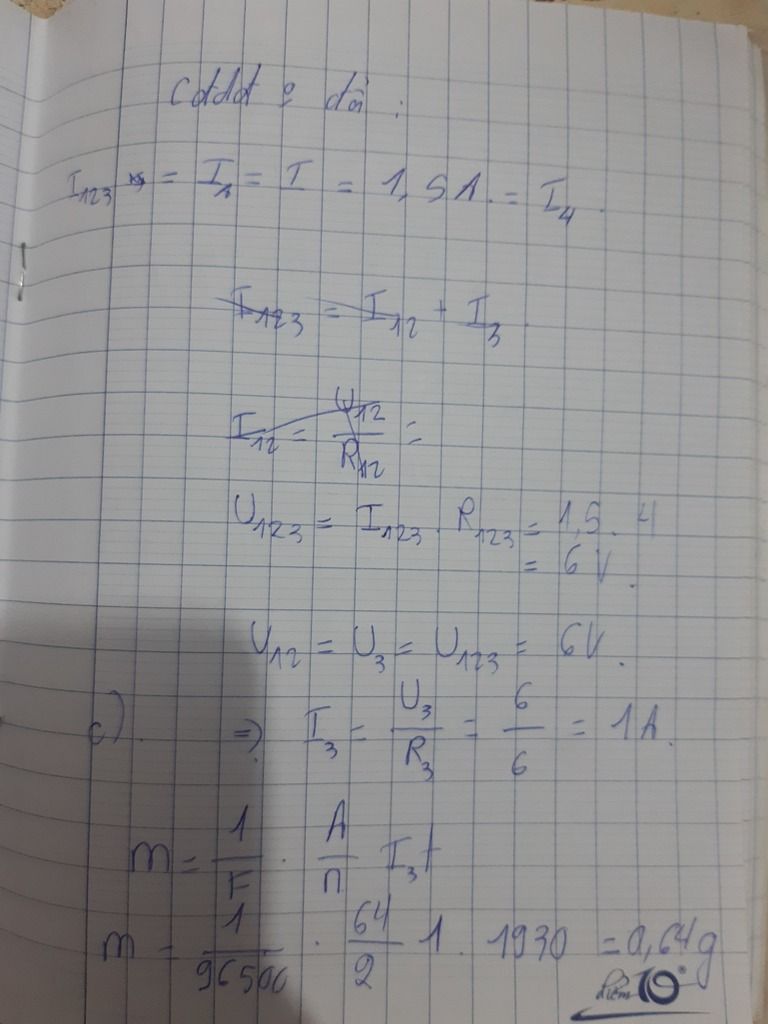 cđdđ ở đâ :
I₁₂₃ = I₁ = I = 1,5A. = I₄.
I₁₂₃ = I₁₂ + I₃
I₁₂ = U₁₂/R₁₂ =
U₁₂₃ = I₁₂₃ . R₁₂₃ = 1,5 . 4
= 6 V.
U₁₂ = U₃ = U₁₂₃ = 6V.
c) => I₃ = U₃/R₃ = 6/6 = 1A.
m = 1/F . A/n I₃t
m = 1/96500 . 64/2 1 . 1930 = 0,64g
điểm 10